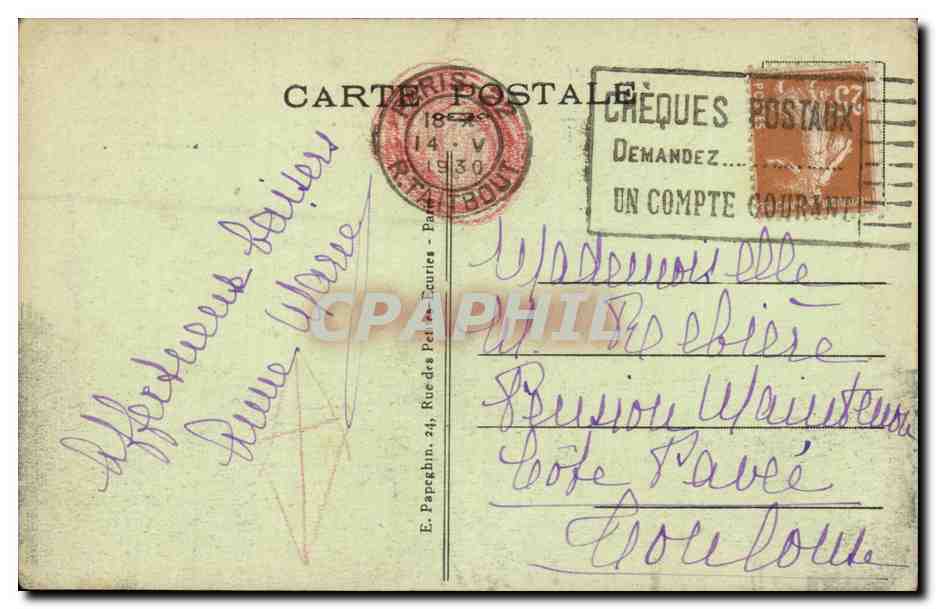 CARTE POSTALE
PARIS
18
14 · V
1930
R. TAITBOUT
CHÈQUES POSTAUX
DEMANDEZ
UN COMPTE COURANT
25
Affectueux baisers
Anne Marie
Mademoiselle
M. Rebière
Pension Maintenon
Côte Pavée
Toulouse
E. Papeghin, 24, Rue des Petites-Ecuries - Paris
CPAPHIL